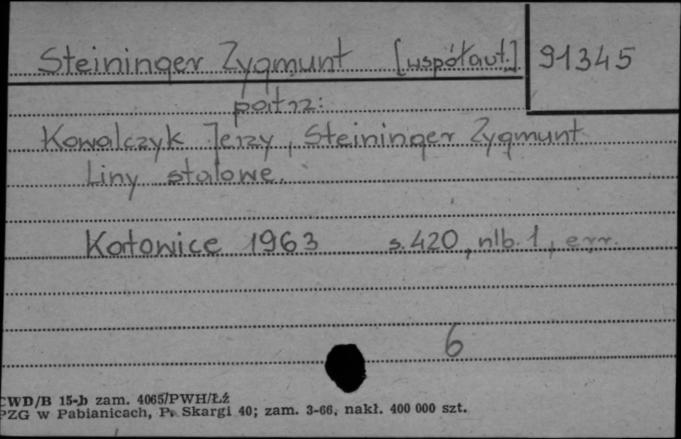 Steininger Zygmunt [współaut.] 91345
patrz:
Kowalczyk Jerzy, Steininger Zygmunt
Liny stalowe.
Katowice 1963 s. 420, nlb. 1, err.
6
CWD/B 15-b zam. 4065/PWH/Łź
PZG w Pabianicach, P. Skargi 40; zam. 3-66, nakł. 400 000 szt.